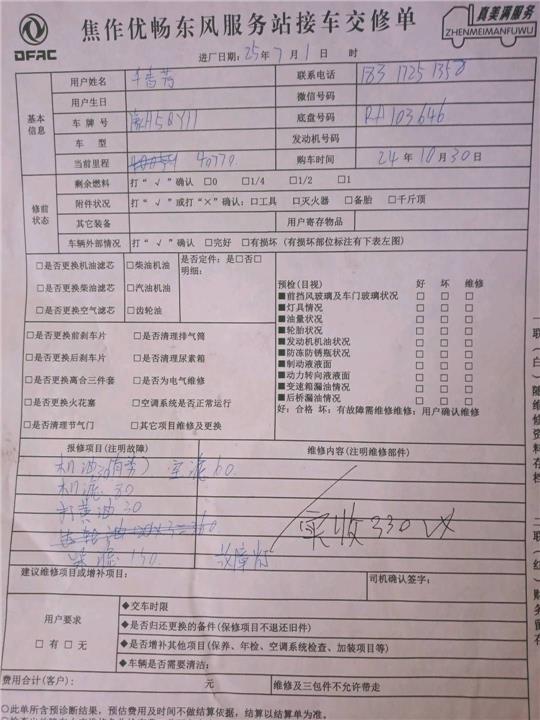 DFAC
焦作优畅东风服务站接车交修单
真美满服务
ZHENMEIMANFUWU
进厂日期：25年7月1日 时
基本信息
用户姓名
联系电话 183 1725 1358
用户生日
微信号码
车牌号 豫A5BY11
底盘号码 RA103646
车型
发动机号码
当前里程 40770
购车时间 24年10月30日
修前状态
剩余燃料 打“√”确认 □0 □1/4 □1/2 □1
附件状况 打“√”或打“×”确认：□工具 □灭火器 □备胎 □千斤顶
其它装备 用户寄存物品
车辆外部情况 打“√”确认 □完好 □有损坏（有损坏部位标注有下表左图）
□是否更换机油滤芯 □柴油机油 是否定件：是□否□
明细：
□是否更换柴油滤芯 □汽油机油
□是否更换空气滤芯 □齿轮油
□是否更换前刹车片 □是否清理排气筒
□是否更换后刹车片 □是否清理尿素箱
□是否更换离合三件套 □是否为电气维修
□是否更换火花塞 □空调系统是否正常运行
□是否清理节气门 □其它项目维修及更换
预检（目视） 好 坏 维修
■前挡风玻璃及车门玻璃状况 □ □ □
■灯具情况 □ □ □
■油量状况 □ □ □
■轮胎状况 □ □ □
■发动机机油状况 □ □ □
■防冻防锈瓶状况 □ □ □
■制动液液面 □ □ □
■动力转向液液面 □ □ □
■变速箱漏油情况 □ □ □
■后桥漏油情况 □ □ □
好：合格 坏：有故障需维修维修：用户确认维修
报修项目（注明故障） 维修内容（注明维修部件）
机油 空滤60
机滤30
打黄油30
柴滤150 故障灯
实收330
建议维修项目或增补项目： 司机确认签字：
用户要求
□有□无
◆交车时限
◆是否归还更换的备件（保修项目不退还旧件）
◆是否增补其他项目（保养、年检、空调系统检查、加装项目等）
◆车辆是否需要清洁：
费用合计（客户）： 元 维修及三包件不允许带走
○此单所含预诊断结果，预估费用及时间不做结算依据，结算以结算单为准。